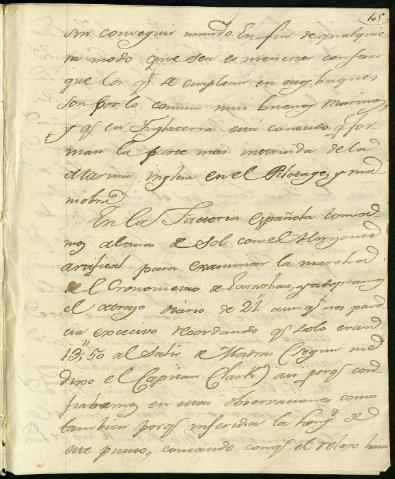 105
sin conseguir mando. En fin de qualquie
ra modo que sea es menester confesar
que los qe. se emplean en esos buques
son por lo comun muy buenos marinos,
y qe. en Inglaterra esta consideron. qe. for
man la parte mas instruida de la
Marina inglesa en el Pilotage, y ma
niobra.
En la Factoria española tomamos
alturas de Sol con el Horizonte
artificial para examinar la marcha
del Cronometro de Earnshaw, y adoptamos
el atraso diario de 21" aunqe. nos pare
cia excesivo recordando qe. solo eran
13",50 al salir de Madras (segun me
dixo el Capitan Clark) asi porqe. con
fiabamos en estas observaciones como
tambien porqe. inferida la long. de
este punto, contando con qe. el relox havia